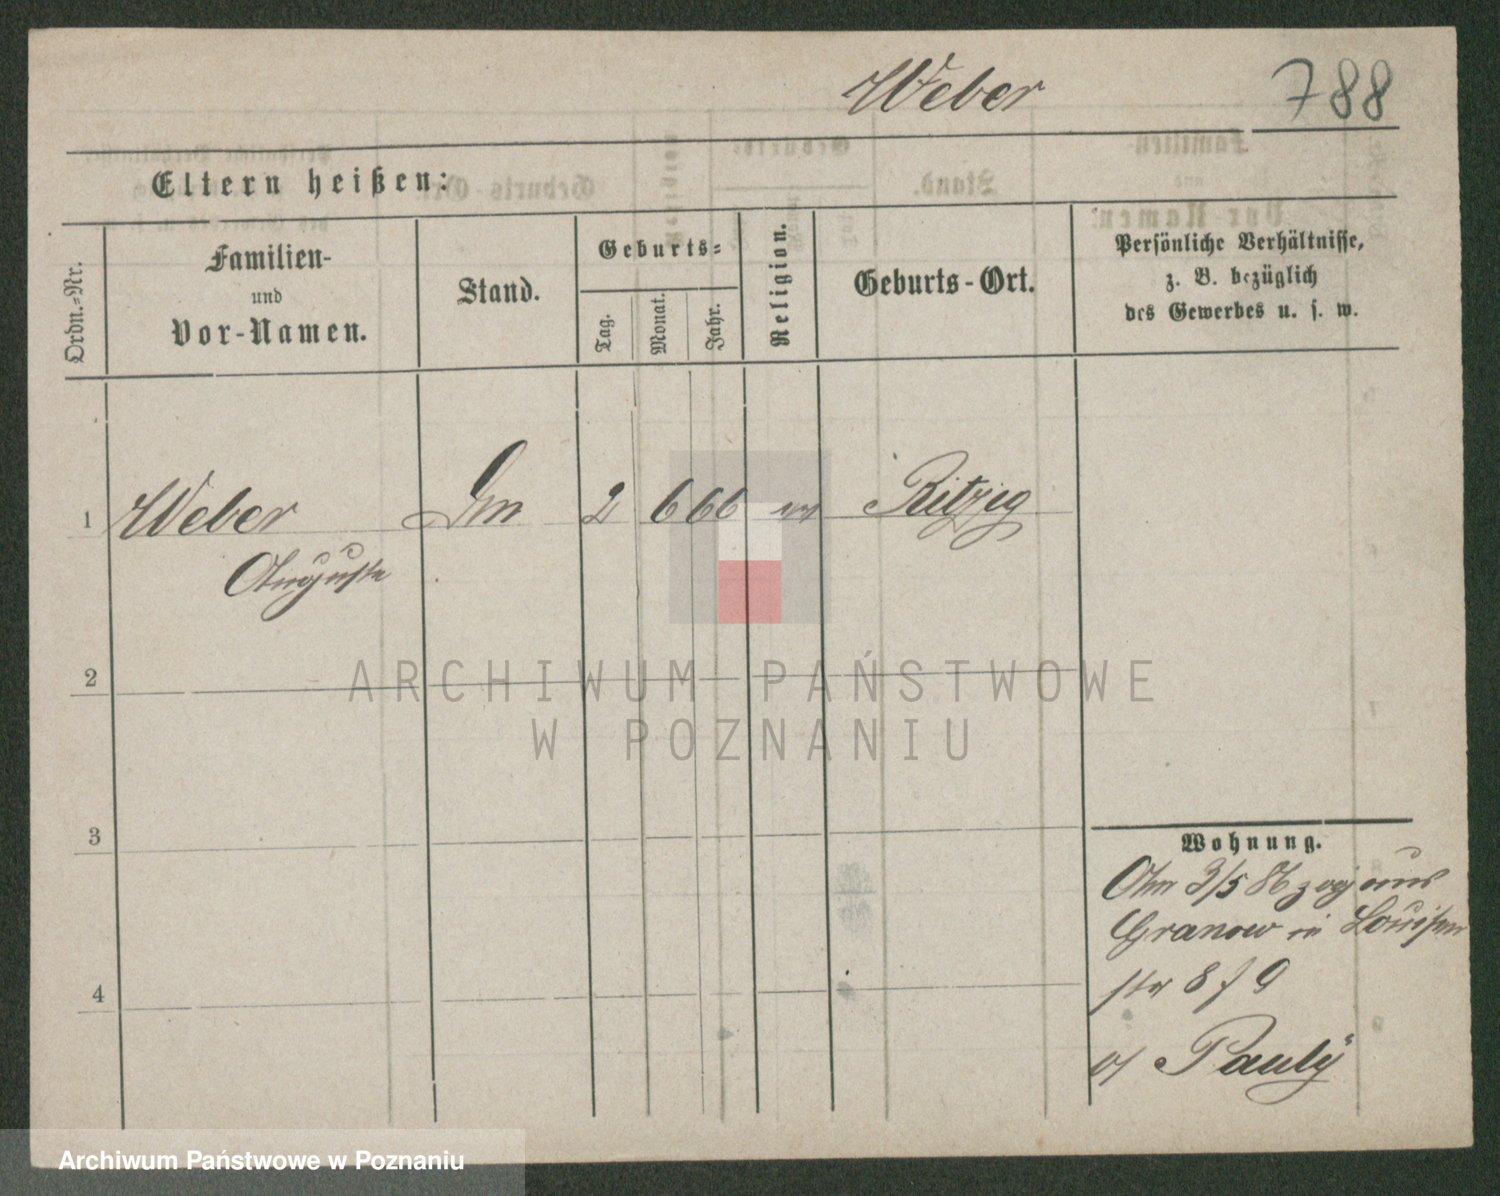 Weber
788
Eltern heißen:
Ordn.-Nr.
Familien-
und
Vor-Namen.
Stand.
Geburts-
Tag.
Monat.
Jahr.
Religion.
Geburts-Ort.
Persönliche Verhältnisse,
z. B. bezüglich
des Gewerbes u. s. w.
1 Weber 2 6 66 Ritzig
Auguste
2
3
4
Wohnung.
3/5 86 zog aus
Granow in Louisen
str 8/9
b/ Pauly
ARCHIWUM PAŃSTWOWE
W POZNANIU
Archiwum Państwowe w Poznaniu